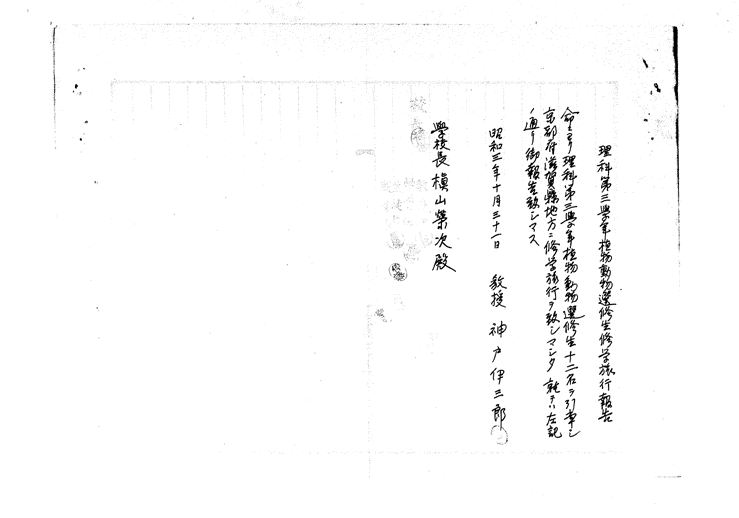 理科第三學年植物動物選修生修学旅行報告
命ニヨリ理科第三學年植物動物選修生十二名ヲ引率シ
京都府滋賀縣地方ニ修学旅行ヲ致シマシタ就テハ左記
ノ通リ御報告致シマス
昭和三年十月三十一日 教授 神戸伊三郎
學校長槇山榮次殿